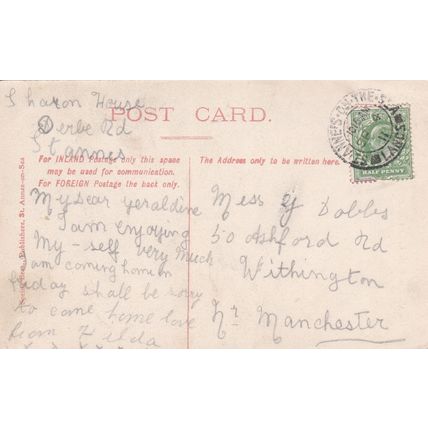 Sharon House
Derbe Rd
St annes
POST CARD.
For INLAND Postage only this space
may be used for communication.
For FOREIGN Postage the back only.
The Address only to be written here.
HALF PENNY
My dear Geraldine
I am enjoying
My-self very much
am coming home on
friday shall be sorry
to come home love
from Hilda
Miss G Dobbs
50 Ashford Rd
Withington
Nr Manchester
Publishers, St. Annes-on-Sea
ST. ANNE'S-ON-THE-SEA